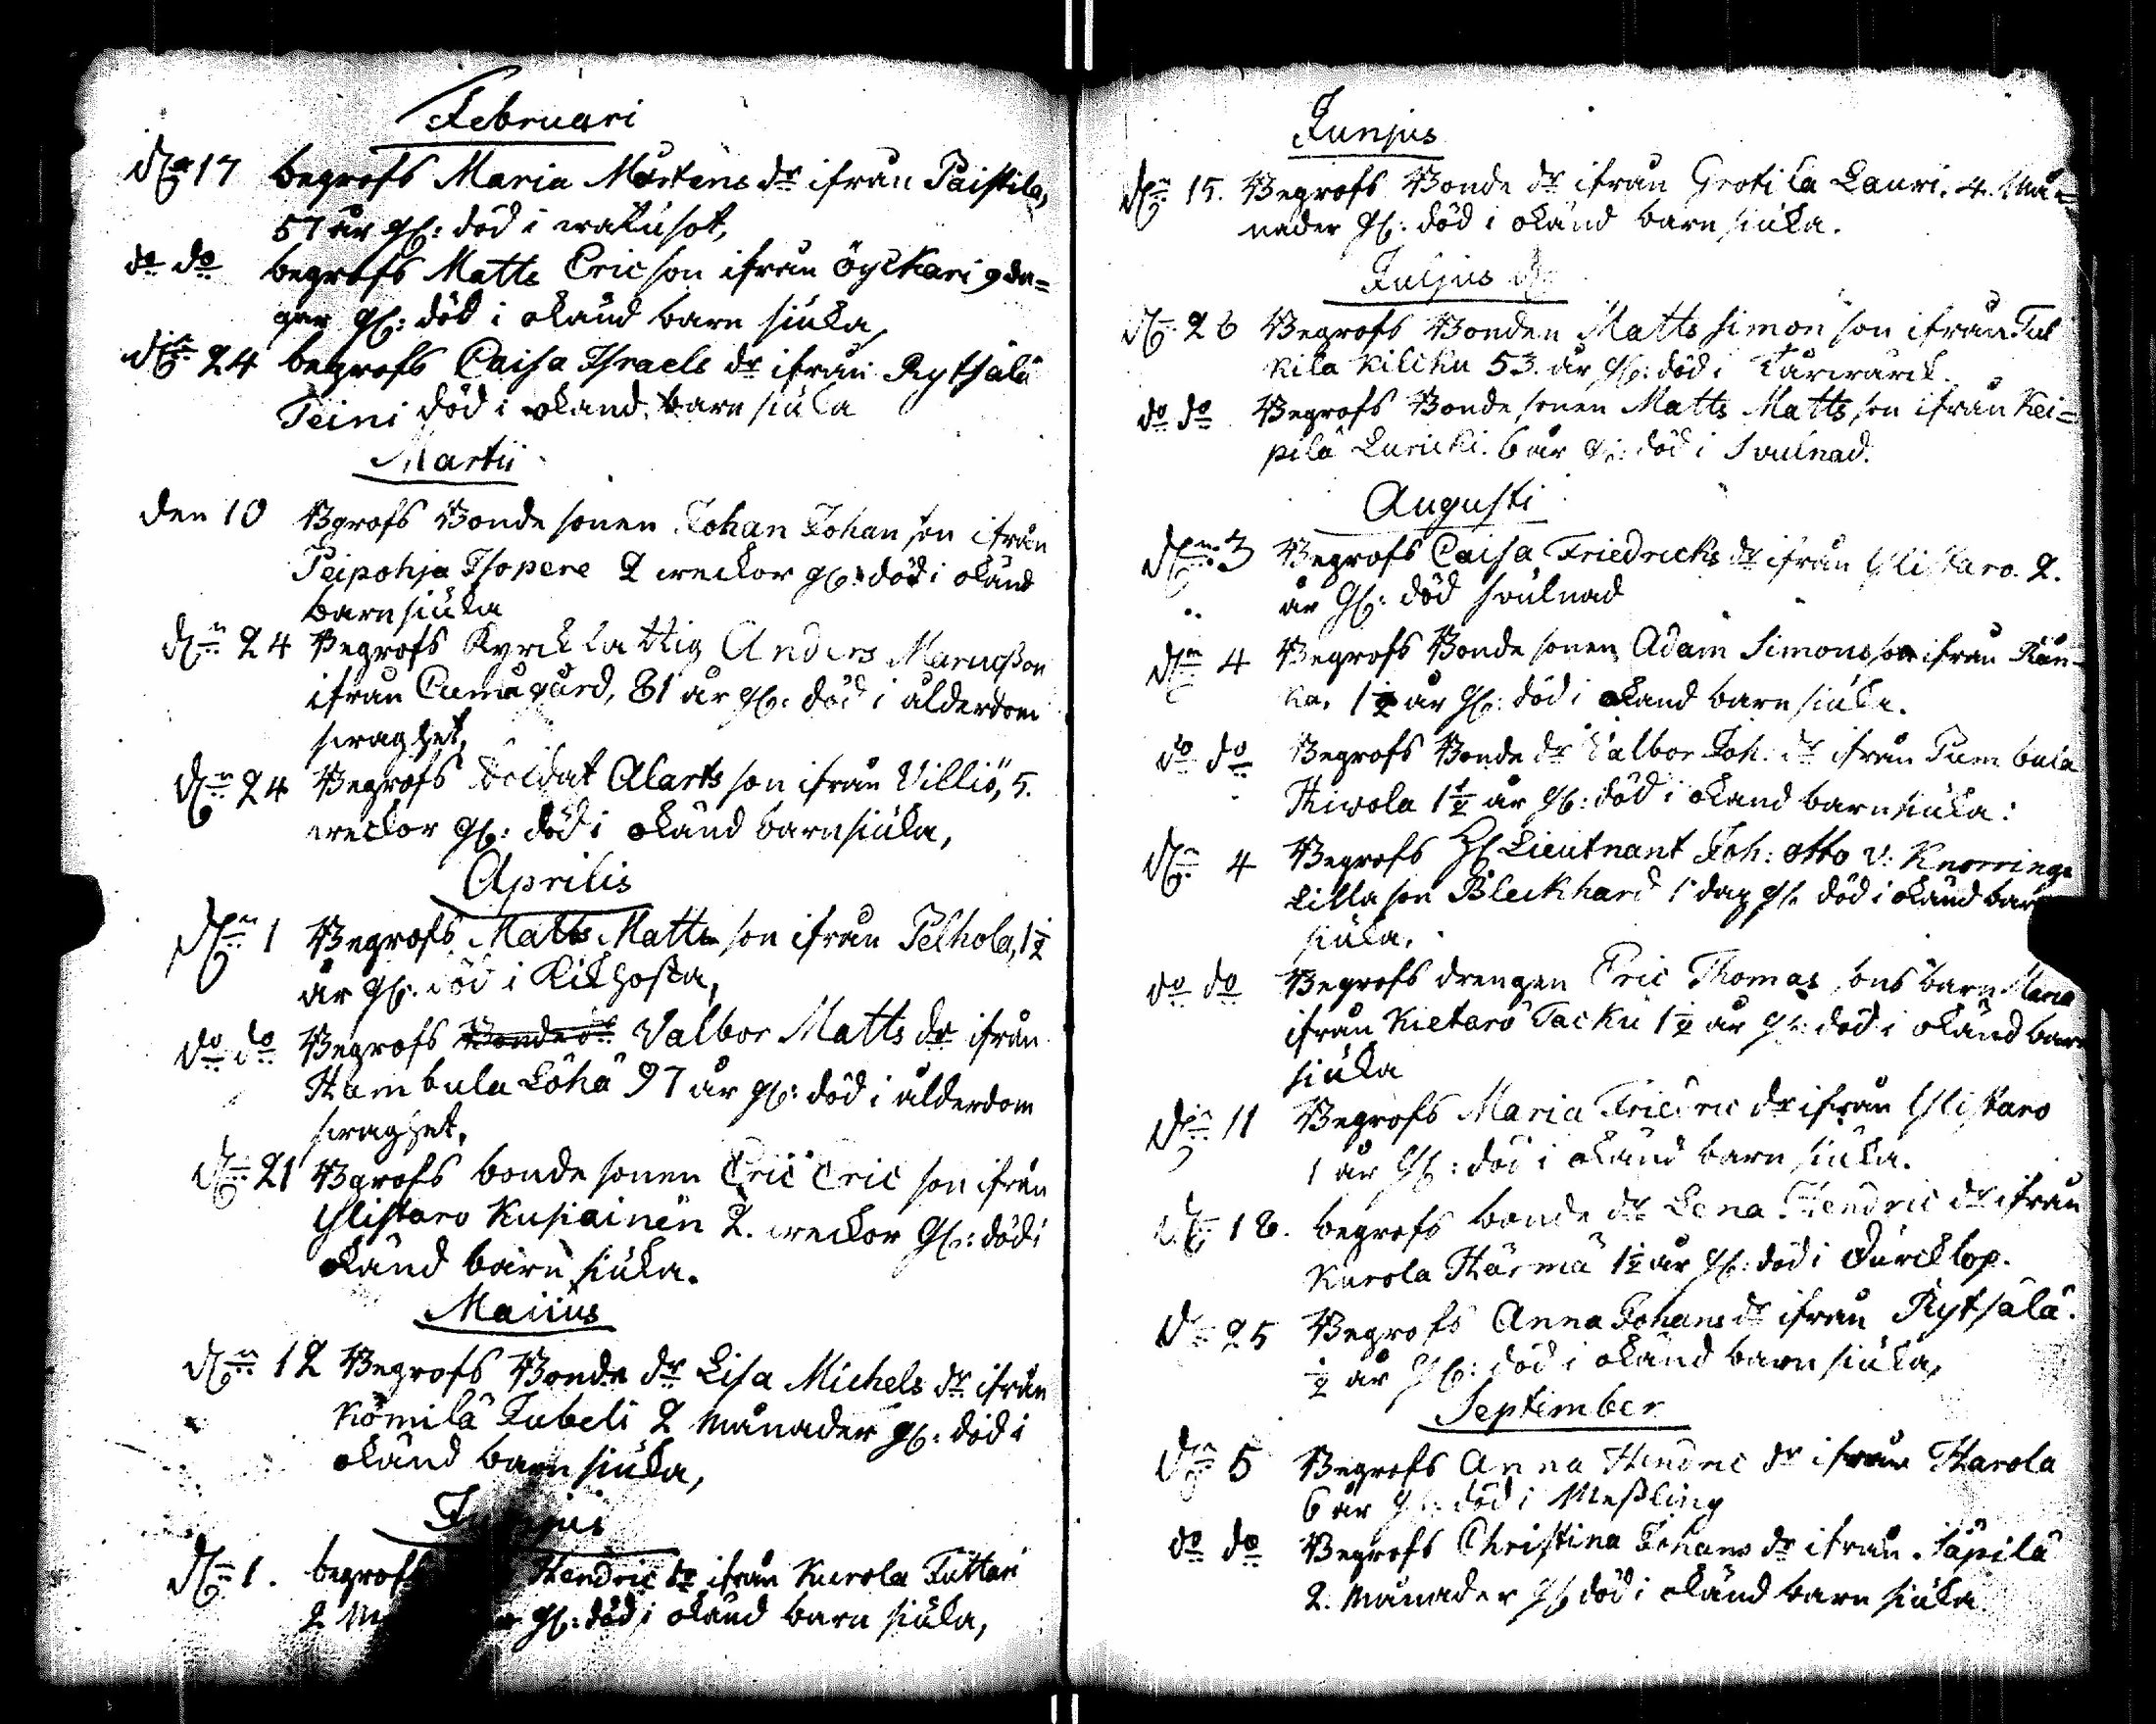 Februari
d:n 17 begrofs Maria Mårtens dr ifrån Paistila,
57 år gl: död i watusot,
do do begrofs Matts Ericson ifrån Öyckari 9 da=
gar gl: död i okänd barn siuka,
d:n 24 begrofs Caisa Israels dr ifrån Rytsälä
Teini död i okand barn siuka
Martii
den 10 Bgrofs Bonde sonen Johan Johan son ifrån
Peipohja Isopere 2 weckor gl: död i okänd
barn siuka
d:n 24 Begrofs Kyrck fattig Anders
ifrån Cumågård, 81 år gl: död i ålderdom
swaghet,
d:n 24 Begrofs Soldat Alarts son ifrån Villiö, 5.
weckor gl: död i okänd barnsiuka,
Aprilis
d:n 1 Begrofs Matts Matts son ifrån Pelhola, 1½
år gl: död i Kikhosta,
do do Begrofs Bonde dr Valbor Matts dr ifrån
Hambula Löhä 97 år gl: död i ålderdom
swaghet,
d:n 21 Bgrofs bonde sonen Eric Eric son ifrån
Ylistaro Kusiainen 2. weckor gl: död i
okänd barn siuka.
Maiius
d:n 12 Begrofs Bonde dr Lisa Michels dr ifrån
Kömilä Jubeli 2 Månader gl: död i
okänd barn siuka,
d:n 1. begrofs Hendric dr ifrån Kurola Tuttari
2 gl: död i okänd barn siuka,
Junjus
d:n 15. Begrofs Bonde dr ifrån Grotila Lauri. 4. Må=
nader gl: död i okänd barn siuka.
Juljus
d:n 26 Begrofs Bonden Matts Simon son ifrån Tul
kila Kilcku 53. år gl: död i
do do Begrofs Bonde sonen Matts Matts son ifrån Kei=
pilä 6 år gl: död i Svulnad.
Augusti
d:n 3 Begrofs Caisa Friedrichs dr ifrån Ylistaro. 2.
år gl: död svulnad
d:n 4 Begrofs Bonde sonen Adam Simons son ifrån Rån-
ka, 1½ år gl: död i okand barn siuka.
do do Begrofs Bonde dr Valbor Joh: dr ifrån
Hiwola 1½ år gl: död i okand barn siuka:
d:n 4 Begrofs H Lieutnant Joh: Otto v: Knorrings
Lilla son Bleckhard 1 dag gl. död i okänd barn
siuka.
do do Begrofs drengen Eric Thomas sons barn Maria
ifrån Kietaro Tacku 1½ år gl: död i okänd barn
siuka
d:n 11 Begrofs Maria Friedric dr ifrån Ylistaro
1 år gl: död i okänd barn siuka.
d:n 18. begrofs bonde dr Lena Hendric dr ifrån
Kurola Härmä 1½ år gl: död i Durcklop.
d:n 25 Begrofs Anna Johans dr ifrån Rytsälä.
½ år gl: död i okänd barn siuka,
September
d:n 5 Begrofs Anna Hendric dr ifrån Harola
6 år gl: död i Meßling
do do Begrofs Christina Johans dr ifrån Säpilä
2. Månader gl död i okänd barn siuka